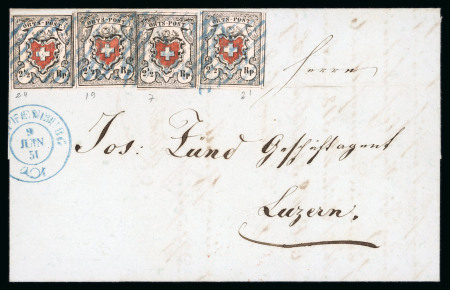 ORTS-POST ORTS-POST ORTS-POST ORTS-POST
2½ Rp 2½ Rp 2½ Rp 2½ Rp
24 19 7 21
Herrn
9
JUIN
51
Jos: Fünd Geschäftsagent
Luzern.